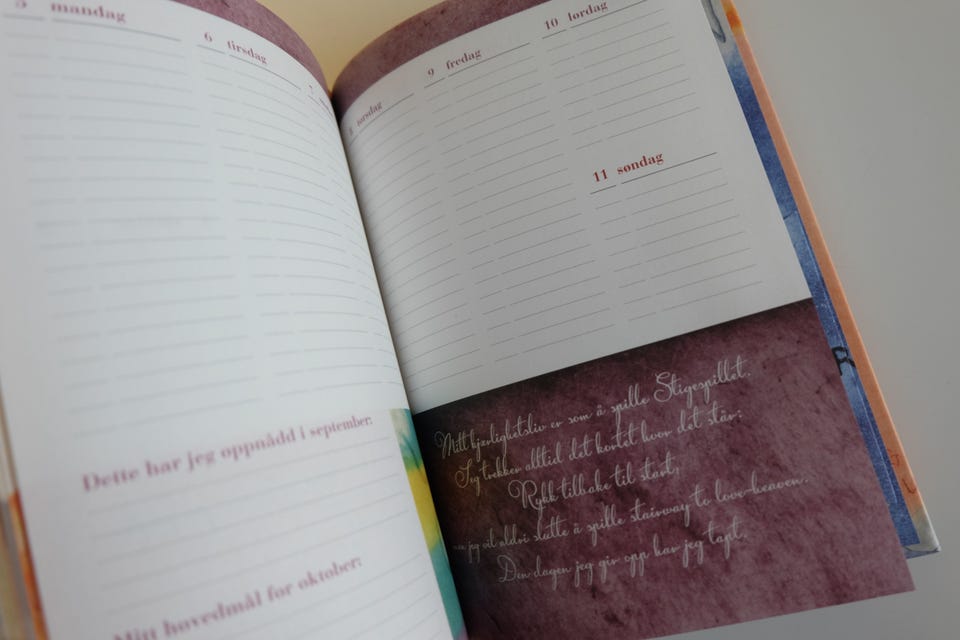 5 mandag
6 tirsdag
Dette har jeg oppnådd i september:
Mitt hovedmål for oktober:
8 torsdag
9 fredag
10 lørdag
11 søndag
Mitt kjærlighetsliv er som å spille Stigespillet.
Jeg trekker alltid det kortet hvor det står:
Rykk tilbake til start,
men jeg vil aldri slutte å spille stairway to love-heaven.
Den dagen jeg gir opp har jeg tapt.